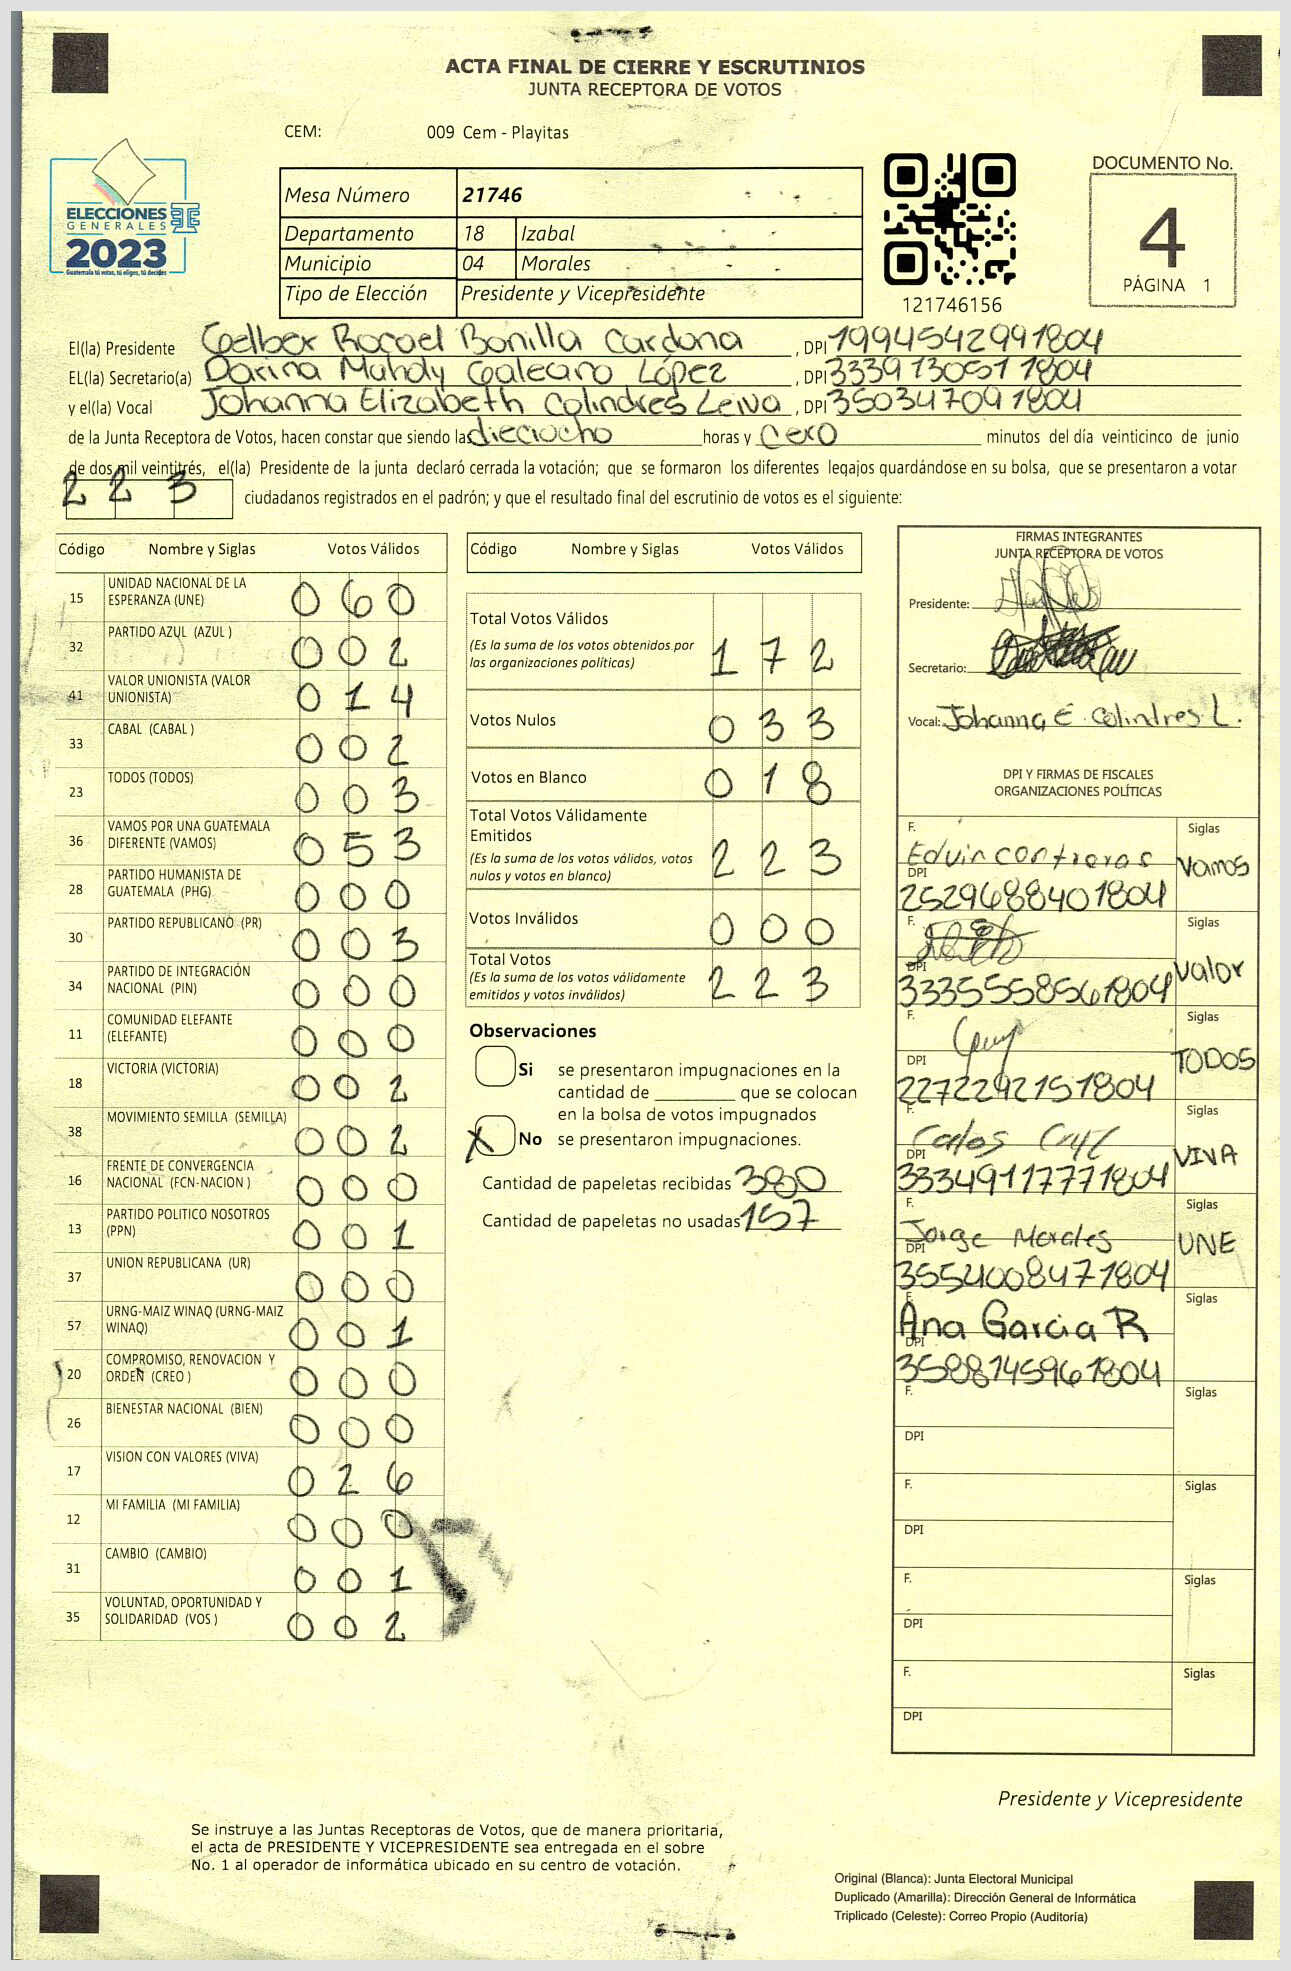 ACTA FINAL DE CIERRE Y ESCRUTINIOS
JUNTA RECEPTORA DE VOTOS
CEM: 009 Cem - Playitas
ELECCIONES
GENERALES
2023
Guatemala tú votas, tú eliges, tú decides
Mesa Número 21746
Departamento 18 Izabal
Municipio 04 Morales
Tipo de Elección Presidente y Vicepresidente
121746156
DOCUMENTO No.
4
PÁGINA 1
El(la) Presidente Gelber Rafael Bonilla Cardona, DPI 1994542991804
EL(la) Secretario(a) Darina Mahdy Galeano López, DPI 3339130511804
y el(la) Vocal Johanna Elizabeth Colindres Leiva, DPI 3503470911804
de la Junta Receptora de Votos, hacen constar que siendo las dieciocho horas y cero minutos del día veinticinco de junio
de dos mil veintitrés, el(la) Presidente de la junta declaró cerrada la votación; que se formaron los diferentes legajos guardándose en su bolsa, que se presentaron a votar
223 ciudadanos registrados en el padrón; y que el resultado final del escrutinio de votos es el siguiente:
Código Nombre y Siglas Votos Válidos
15 UNIDAD NACIONAL DE LA ESPERANZA (UNE) 060
32 PARTIDO AZUL (AZUL ) 002
41 VALOR UNIONISTA (VALOR UNIONISTA) 014
33 CABAL (CABAL ) 002
23 TODOS (TODOS) 003
36 VAMOS POR UNA GUATEMALA DIFERENTE (VAMOS) 053
28 PARTIDO HUMANISTA DE GUATEMALA (PHG) 000
30 PARTIDO REPUBLICANO (PR) 003
34 PARTIDO DE INTEGRACIÓN NACIONAL (PIN) 000
11 COMUNIDAD ELEFANTE (ELEFANTE) 000
18 VICTORIA (VICTORIA) 002
38 MOVIMIENTO SEMILLA (SEMILLA) 002
16 FRENTE DE CONVERGENCIA NACIONAL (FCN-NACION ) 000
13 PARTIDO POLITICO NOSOTROS (PPN) 001
37 UNION REPUBLICANA (UR) 000
57 URNG-MAIZ WINAQ (URNG-MAIZ WINAQ) 001
20 COMPROMISO, RENOVACION Y ORDEN (CREO ) 000
26 BIENESTAR NACIONAL (BIEN) 000
17 VISION CON VALORES (VIVA) 026
12 MI FAMILIA (MI FAMILIA) 000
31 CAMBIO (CAMBIO) 001
35 VOLUNTAD, OPORTUNIDAD Y SOLIDARIDAD (VOS ) 002
Código Nombre y Siglas Votos Válidos
Total Votos Válidos
(Es la suma de los votos obtenidos por
las organizaciones políticas) 172
Votos Nulos 033
Votos en Blanco 018
Total Votos Válidamente
Emitidos
(Es la suma de los votos válidos, votos
nulos y votos en blanco) 223
Votos Inválidos 000
Total Votos
(Es la suma de los votos válidamente
emitidos y votos inválidos) 223
Observaciones
Si se presentaron impugnaciones en la
cantidad de ________ que se colocan
en la bolsa de votos impugnados
X No se presentaron impugnaciones.
Cantidad de papeletas recibidas 380
Cantidad de papeletas no usadas 157
FIRMAS INTEGRANTES
JUNTA RECEPTORA DE VOTOS
Presidente:
Secretario:
Vocal: Johanna E. Colindres L.
DPI Y FIRMAS DE FISCALES
ORGANIZACIONES POLÍTICAS
F. Edvin contreras Siglas Vamos
DPI 2529688401804
F. Siglas Valor
DPI 3335558561804
F. Siglas TODOS
DPI 2272292151804
F. Carlos Siglas VIVA
DPI 33349117771804
F. Jorge Morales Siglas UNE
DPI 3554008471804
F. Ana Garcia R Siglas
DPI 3588145961804
F. Siglas
DPI
F. Siglas
DPI
F. Siglas
DPI
F. Siglas
DPI
Presidente y Vicepresidente
Se instruye a las Juntas Receptoras de Votos, que de manera prioritaria,
el acta de PRESIDENTE Y VICEPRESIDENTE sea entregada en el sobre
No. 1 al operador de informática ubicado en su centro de votación.
Original (Blanca): Junta Electoral Municipal
Duplicado (Amarilla): Dirección General de Informática
Triplicado (Celeste): Correo Propio (Auditoría)